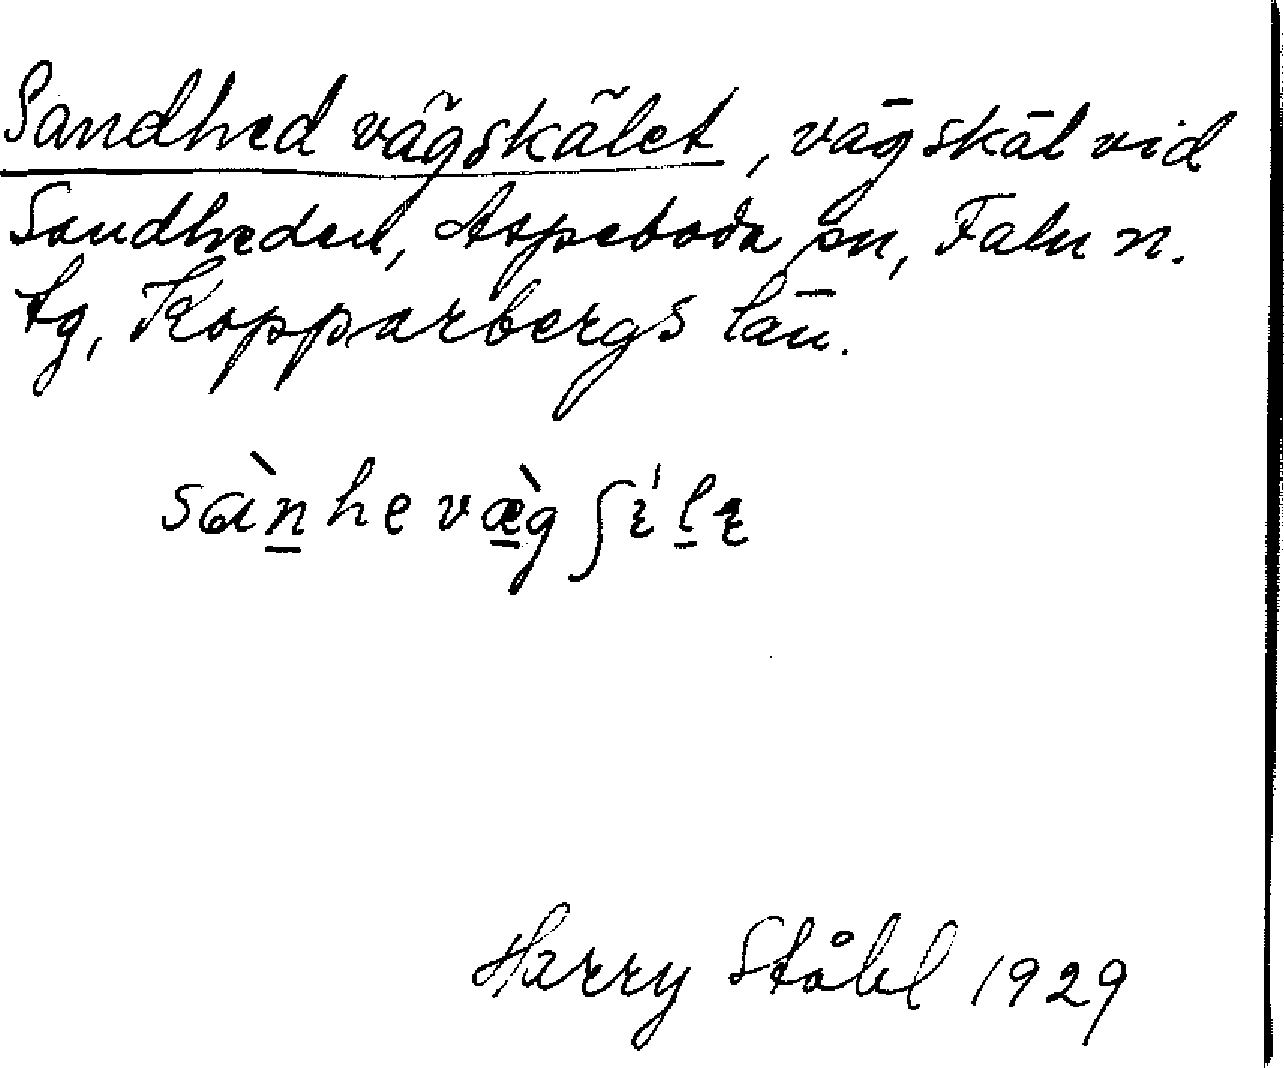 Sandhed vägskälet, vägskäl vid
Sandheden, Aspeboda sn, Falu n.
tg, Kopparbergs län.
sànhevæ̀gʃélę
Harry Ståhl 1929